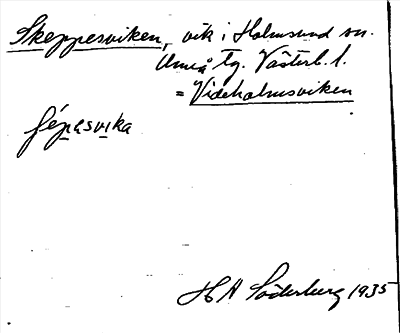 Skeppesviken, vik i Holmsund sn.
Umeå tg. Västerb. l.
= Videholmsviken
fépasvika
H A Söderberg 1935